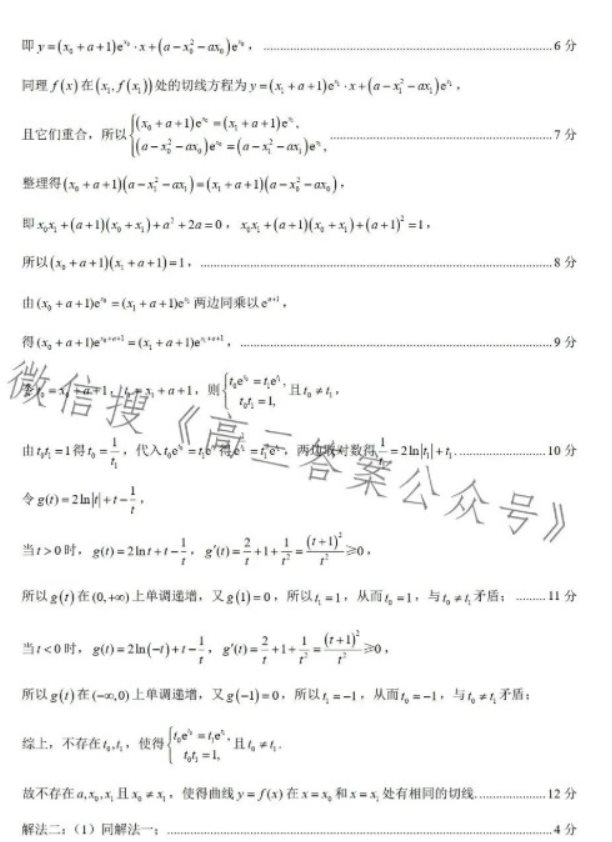 即 y=(x₀+a+1)e^{x₀}·x+(a−x₀²−ax₀)e^{x₀}，……6 分
同理 f(x) 在 (x₁, f(x₁)) 处的切线方程为 y=(x₁+a+1)e^{x₁}·x+(a−x₁²−ax₁)e^{x₁}，
且它们重合，所以{(x₀+a+1)e^{x₀}=(x₁+a+1)e^{x₁}, (a−x₀²−ax₀)e^{x₀}=(a−x₁²−ax₁)e^{x₁}, ……7 分
整理得(x₀+a+1)(a−x₁²−ax₁)=(x₁+a+1)(a−x₀²−ax₀)，
即 x₀x₁+(a+1)(x₀+x₁)+a²+2a=0，x₀x₁+(a+1)(x₀+x₁)+(a+1)²=1，
所以(x₀+a+1)(x₁+a+1)=1，……8 分
由(x₀+a+1)e^{x₀}=(x₁+a+1)e^{x₁} 两边同乘以 e^{a+1}，
得(x₀+a+1)e^{x₀+a+1}=(x₁+a+1)e^{x₁+a+1}，……9 分
令 t₀=x₀+a+1，t₁=x₁+a+1，则{t₀e^{t₀}=t₁e^{t₁}, t₀t₁=1, 且 t₀≠t₁，
由 t₀t₁=1 得 t₀=1/t₁，代入 t₀e^{t₀}=t₁e^{t₁} 得 e^{1/t₁}=t₁²e^{t₁}，两边取对数得 1/t₁=2ln|t₁|+t₁.……10 分
令 g(t)=2ln|t|+t−1/t，
当 t>0 时，g(t)=2ln t+t−1/t，g′(t)=2/t+1+1/t²=(t+1)²/t²≥0，
所以 g(t) 在(0,+∞)上单调递增，又 g(1)=0，所以 t₁=1，从而 t₀=1，与 t₀≠t₁ 矛盾；……11 分
当 t<0 时，g(t)=2ln(−t)+t−1/t，g′(t)=2/t+1+1/t²=(t+1)²/t²≥0，
所以 g(t) 在(−∞,0)上单调递增，又 g(−1)=0，所以 t₁=−1，从而 t₀=−1，与 t₀≠t₁ 矛盾；
综上，不存在 t₀,t₁，使得{t₀e^{t₀}=t₁e^{t₁}, t₀t₁=1, 且 t₀≠t₁.
故不存在 a,x₀,x₁ 且 x₀≠x₁，使得曲线 y=f(x) 在 x=x₀ 和 x=x₁ 处有相同的切线.……12 分
解法二：（1）同解法一；……4 分
微信搜《高三答案公众号》